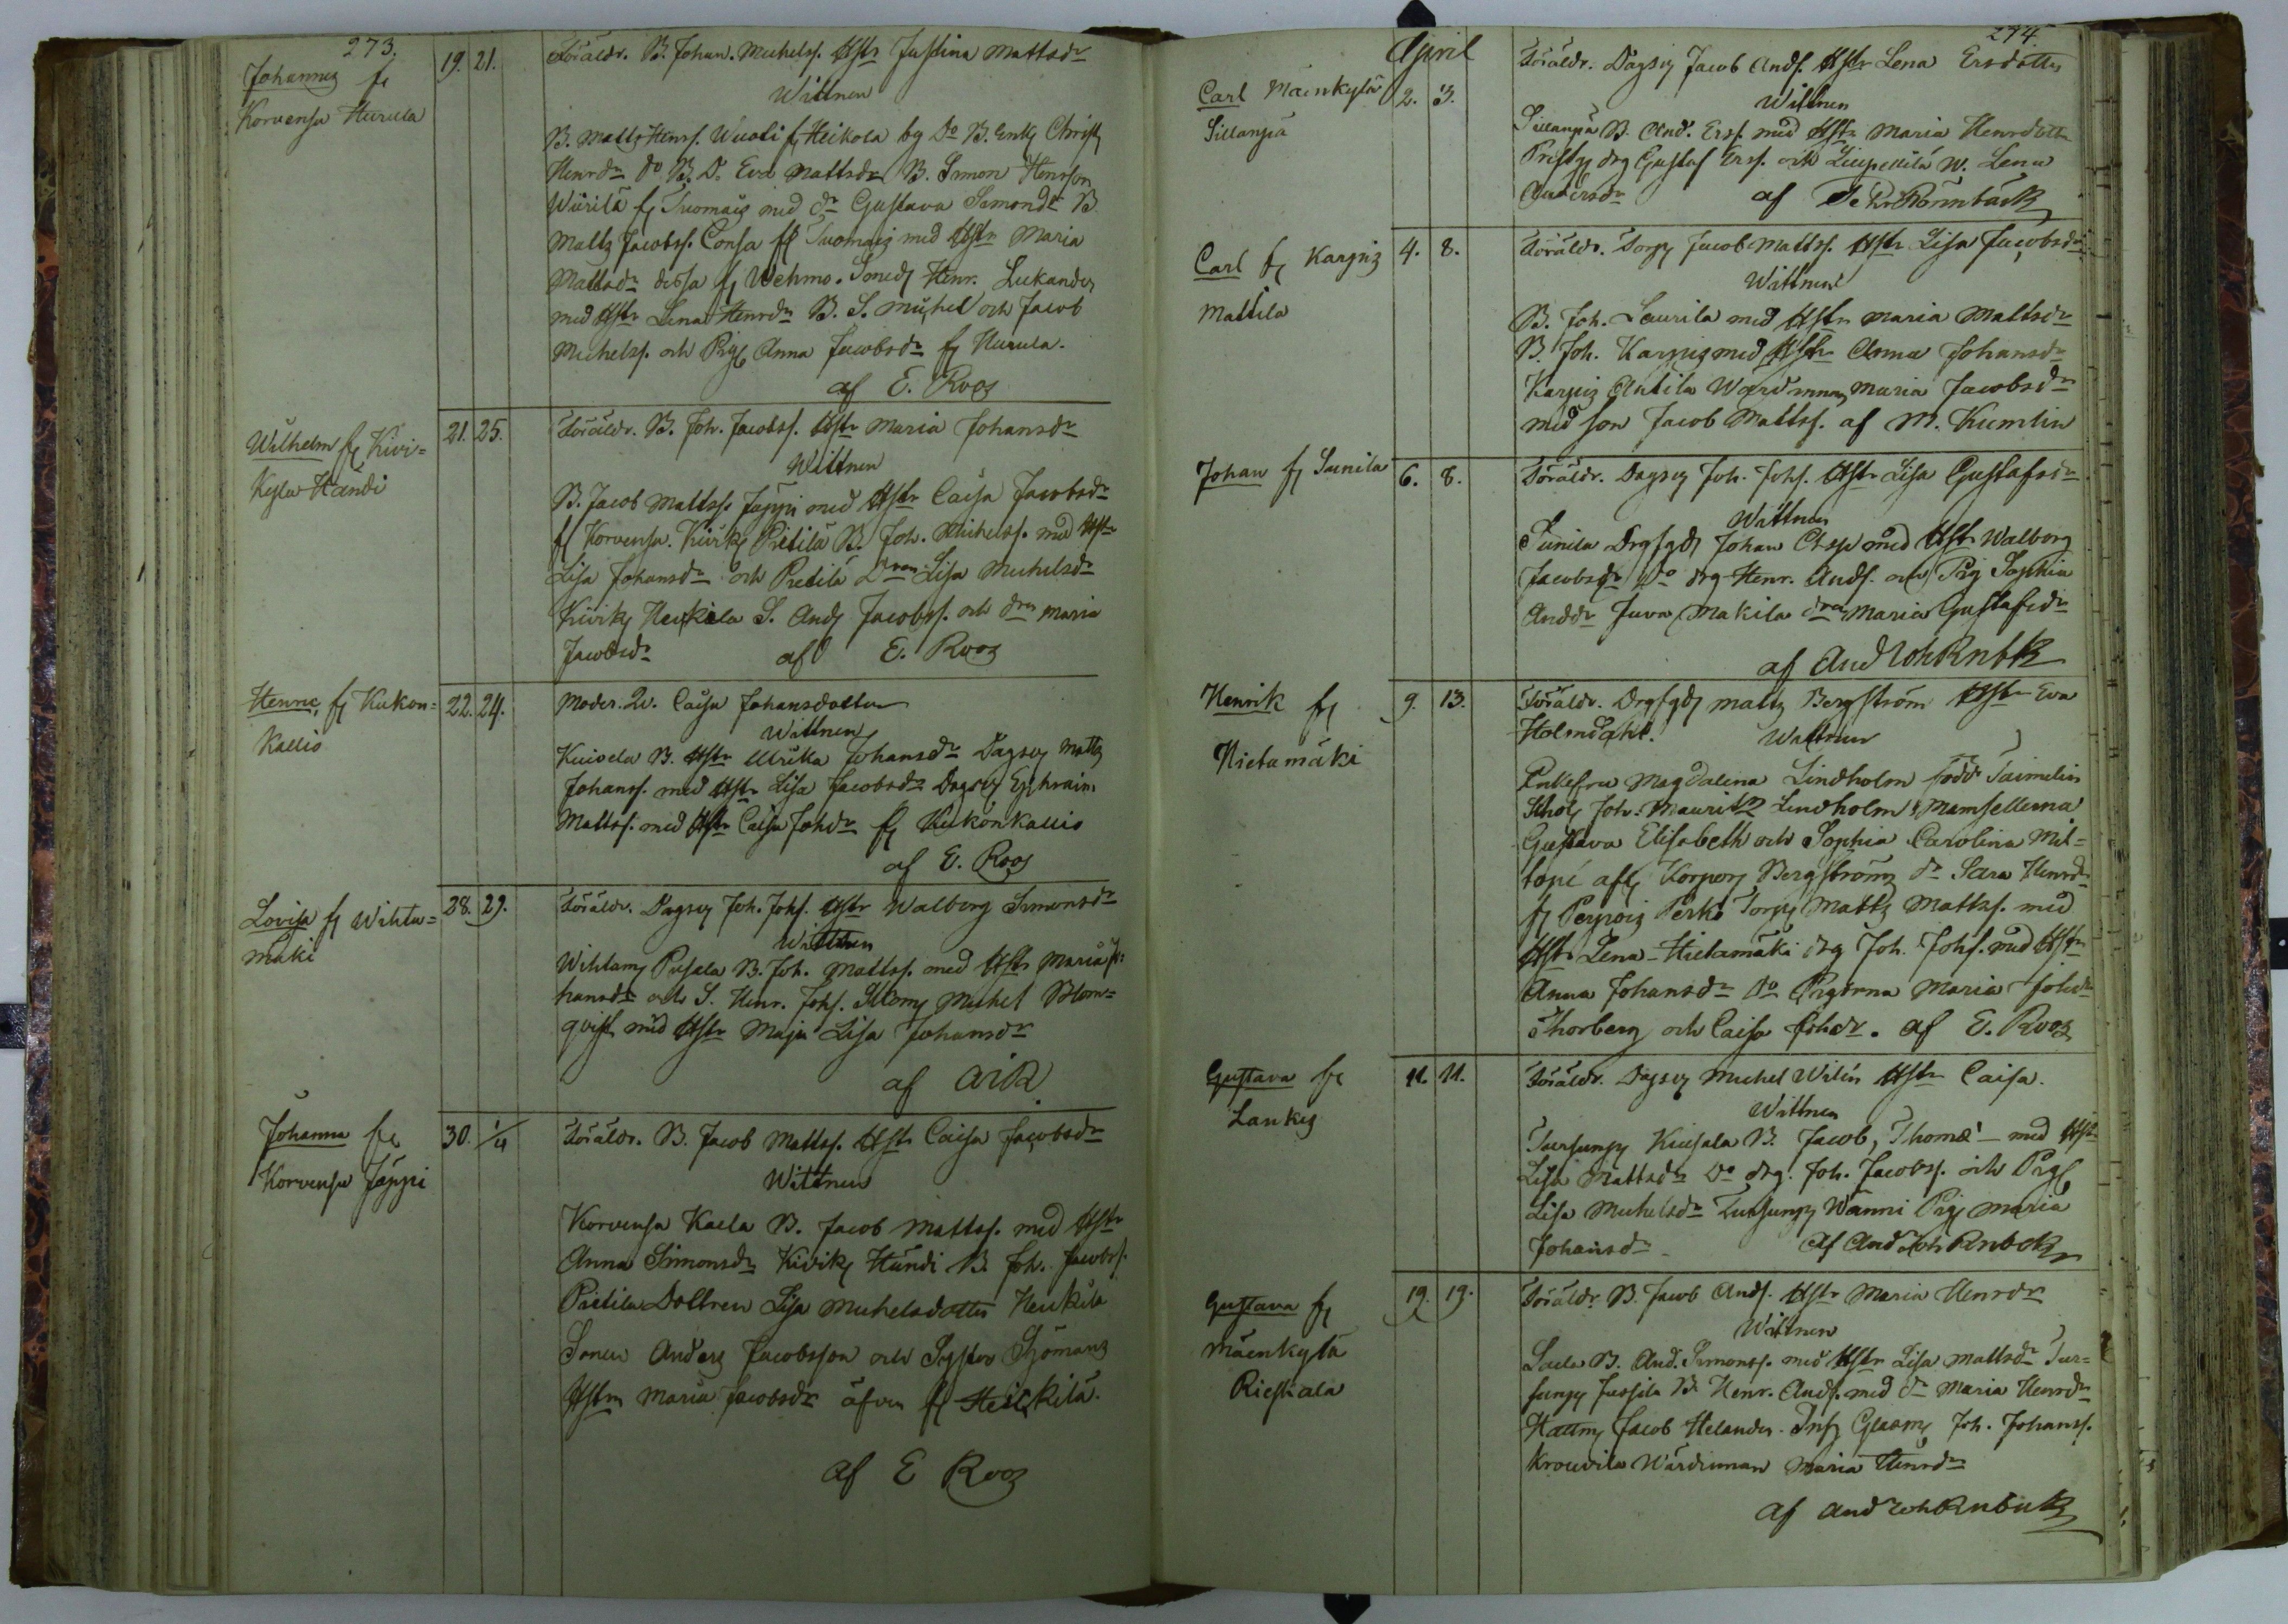 273.
Johannes fr
Korvensu Hurula
19. 21.
Föräldr. B. Johan. Michelss. Hstr Justina Mattsdr
Wittnen
B. Matts Henrs. Wuoti fr Heikola by Do B. Enk Christ
Henrdr do B. D. Eva Mattsdr B. Simon Henrson
Wiurilä fr Tuomais med dr Gustava Simonsdr B
Matts Jacobss. Consa fr Tuomais med Hstr Maria
Mattsdr dessa fr Wehmo. Smed Henr. Lukander
med Hstr Lena Henrdr B. S. Michel och Jacob
Michelss. och Pig Anna Jacobsdr fr Hurula.
af E. Roos
Wilhelm fr Kivi=
kylä Händi
21. 25.
Föräldr. B. Joh. Jacobss. Hstr Maria Johansdr
Wittnen
B. Jacob Mattss. Jäppi med Hstr Caisa Jacobsdr
fr Korvensu. Kivik Pietilä B. Joh. Michelss. med Hstr
Lisa Johansdr och Pietilä Dran Lisa Michelsdr
Kivik Heikilä S. And Jacobss. och drn Maria
Jacobsdr af E. Roos
Henric fr Kukon=
kallio
22. 24.
Moder. Qv. Caisa Johansdotter
Wittnen
Kuisela B. Hstr Ulrika Johansdr Dagsv Matts
Johanss. med Hstr Lisa Jacobsdr Dagsv Ephraim
Mattss. med Hstr Caisa Johdr fr Kukonkallio
af E. Roos
Lovisa fr Wihta=
mäki
28. 29.
Föräldr. Dagsv Joh. Johs. Hstr Walborg Simonsdr
Wittnen
Wihtam Pusala B. Joh. Mattss. med Hstr Maria Jo=
hansdr och S. Henr. Johs. Michel Blom=
qvist med Hstr Maja Lisa Johansdr
af AJR.
Johanna fr
Korvensu Jäppi
30. 1/4
Föräldr. B. Jacob Mattss. Hstr Caisa Jacobsdr
Wittnen
Korvensu Kaela B. Jacob Mattss. med Hstr
Anna Simonsdr Kivik Händi B. Joh. Jacobss.
Pietila Dottren Lisa Michelsdotter Heikilä
Sonen Anders Jacobsson och Syster Sjömans
Hstrn Maria Jacobsdr äfven fr Heikkilä.
af E Roos
274.
April
Carl Mäenkylä
Sillanpä
2. 3.
Föräldr. Dagsv Jacob Ands. Hstr Lena Ersdotter
Wittnen
Sillanpä B. And. Erss. med Hstr Maria Henrdotter
Prestg drg Gustaf Erss. och W. Lena
Andersdr af Rönnbäck
Carl fr Karjris
Mattila
4. 8.
Föräldr. Torp Jacob Mattss. Hstr Lisa Jacobsdr
Wittnen
B. Joh. Laurila med Hstr Maria Mattsdr
B. Joh. Karjris med Hstr Anna Johansdr
Karjris Antila Wärdinnan Maria Jacobsdr
med son Jacob Mattss. af M. Kumlin
Johan fr Sunila
6. 8.
Föräldr. Dagsv Joh. Johs. Hstr Lisa Gustafsdr
Wittnen
Sunila Drgfgd Johan med Hstr Walborg
Jacobsdr do drg Henr. Ands. och Pig Sophia
Anddr Juva Makila dran Maria Gustafsdr
af And Joh Rnbk
Henrik fr
Hietamäki
9. 13.
Föräldr. Drgfgd Matts Bergström Hstr Eva
Holmdahl. Wittnen
Enkefru Magdalena Lindholm född Taimelin
Stud Joh. Mauritz Lindholm, Mamsellerna
Gustava Elisabeth och Sophia Carolina Mil=
topé afl Korpor Bergströms dr Sara Henrdr
fr Perkö Torp Matts Mattss. med
Hstr Lena Hietamäki drg Joh. Johs. med Hstr
Anna Johansdr Do Pigorna Maria Johdr
Thorberg och Caisa Johdr. af E. Roos
Gustava fr
Lankis
11. 11.
Föräldr. Dagsv Michel Wilén Hstr Caisa.
Wittnen
Tursunp Kuusala B. Jacob Thomæ med Hstr
Lisa Mattsdr Do drg. Joh. Jacobss. och Pig
Lisa Michelsdr Tursunp Wänni Pig Maria
Johansdr af And Joh Rnbck
Gustava fr
Mäenkylä
Rieskala
19. 19.
Föräldr. B. Jacob Ands. Hstr Maria Henrdr
Wittnen
B. And. Simonss. med Hstr Lisa Mattsdr Tur=
sunp Jussila B. Henr. Ands. med dr Maria Henrdr
Hattm Jacob Helander. Glasm Joh. Johanss.
Krouvila Wärdinnan Maria Henrdr
af And Joh Rnbck